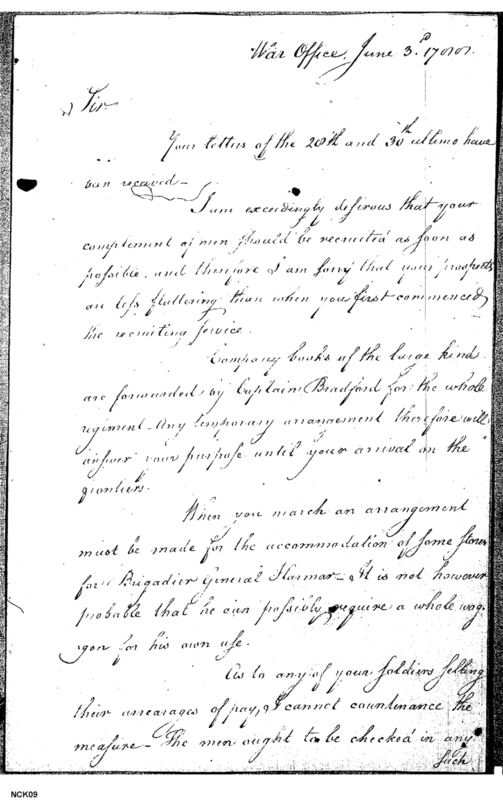 War Office, June 3d. 17
Sir
Your letters of the 28th and 30th ultimo have
been received—
I am exceedingly desirous that your
complement of men should be recruited as soon as
possible, and therefore I am sorry that your prospects
are less flattering than when you first commenced
the recruiting service.
Company books of the large kind
are forwarded by Captain Bradford for the whole
regiment—Any temporary arrangement therefore will
answer your purpose until your arrival on the
frontiers.
When you march an arrangement
must be made for the accommodation of some stores
for Brigadier General Harmar—It is not however
probable that he can possibly require a whole wag-
gon for his own use.
As to any of your soldiers selling
their arrearages of pay, I cannot countenance the
measure—The men ought to be checked in any
such
NCK09